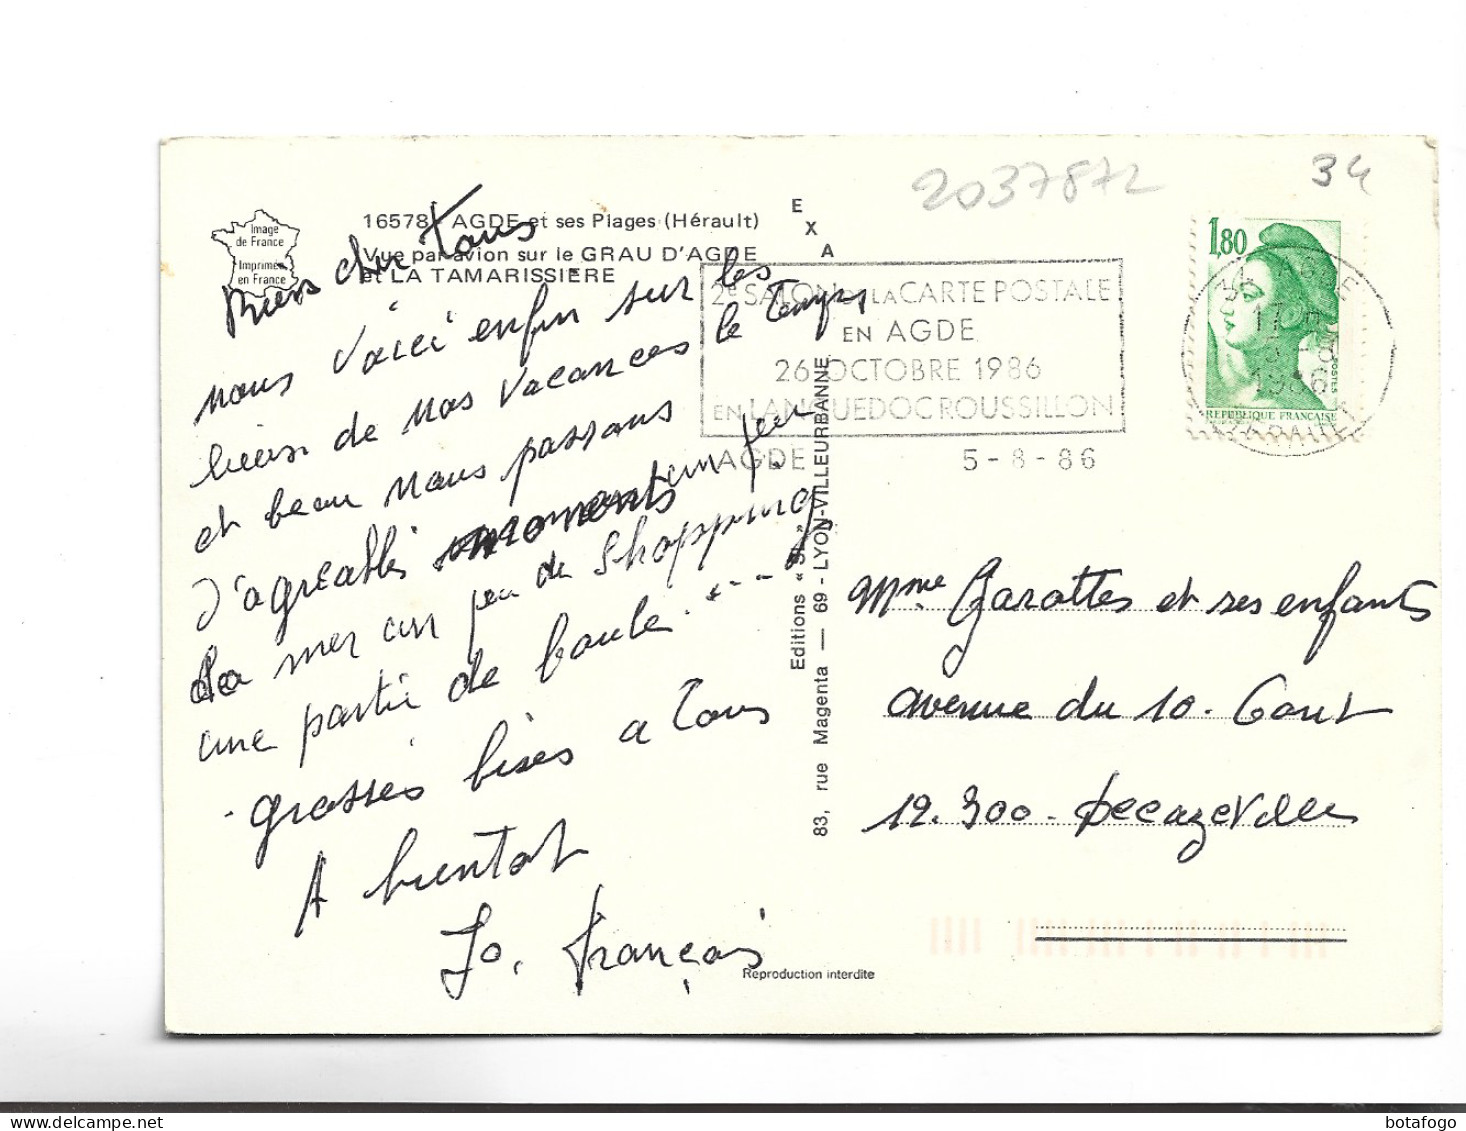 2037872
34
Image
de France
Imprimée
en France
16578 - AGDE et ses Plages (Hérault)
Vue par avion sur le GRAU D'AGDE
et LA TAMARISSIERE
E
X
A
1,80
POSTES
REPUBLIQUE FRANÇAISE
2e SALON DE LA CARTE POSTALE
EN AGDE
26 OCTOBRE 1986
EN LANGUEDOC ROUSSILLON
AGDE
5-8-86
34 AGDE
17 H
5 - 8
1986
HERAULT
Biens cher Tous
nous Voici enfin sur les
lieux de nos vacances le Temps
et beau nous passons
d'agréables moments un peu
la mer un peu de Shopping
une partie de boule. . - - -
grosses bises a Tous
A bientot
Jo. François
Editions « SL »
83, rue Magenta — 69 - LYON-VILLEURBANNE
Mme Garottes et ses enfants
avenue du 10. Aout
12.300. Decazeville
Reproduction interdite
botafogo